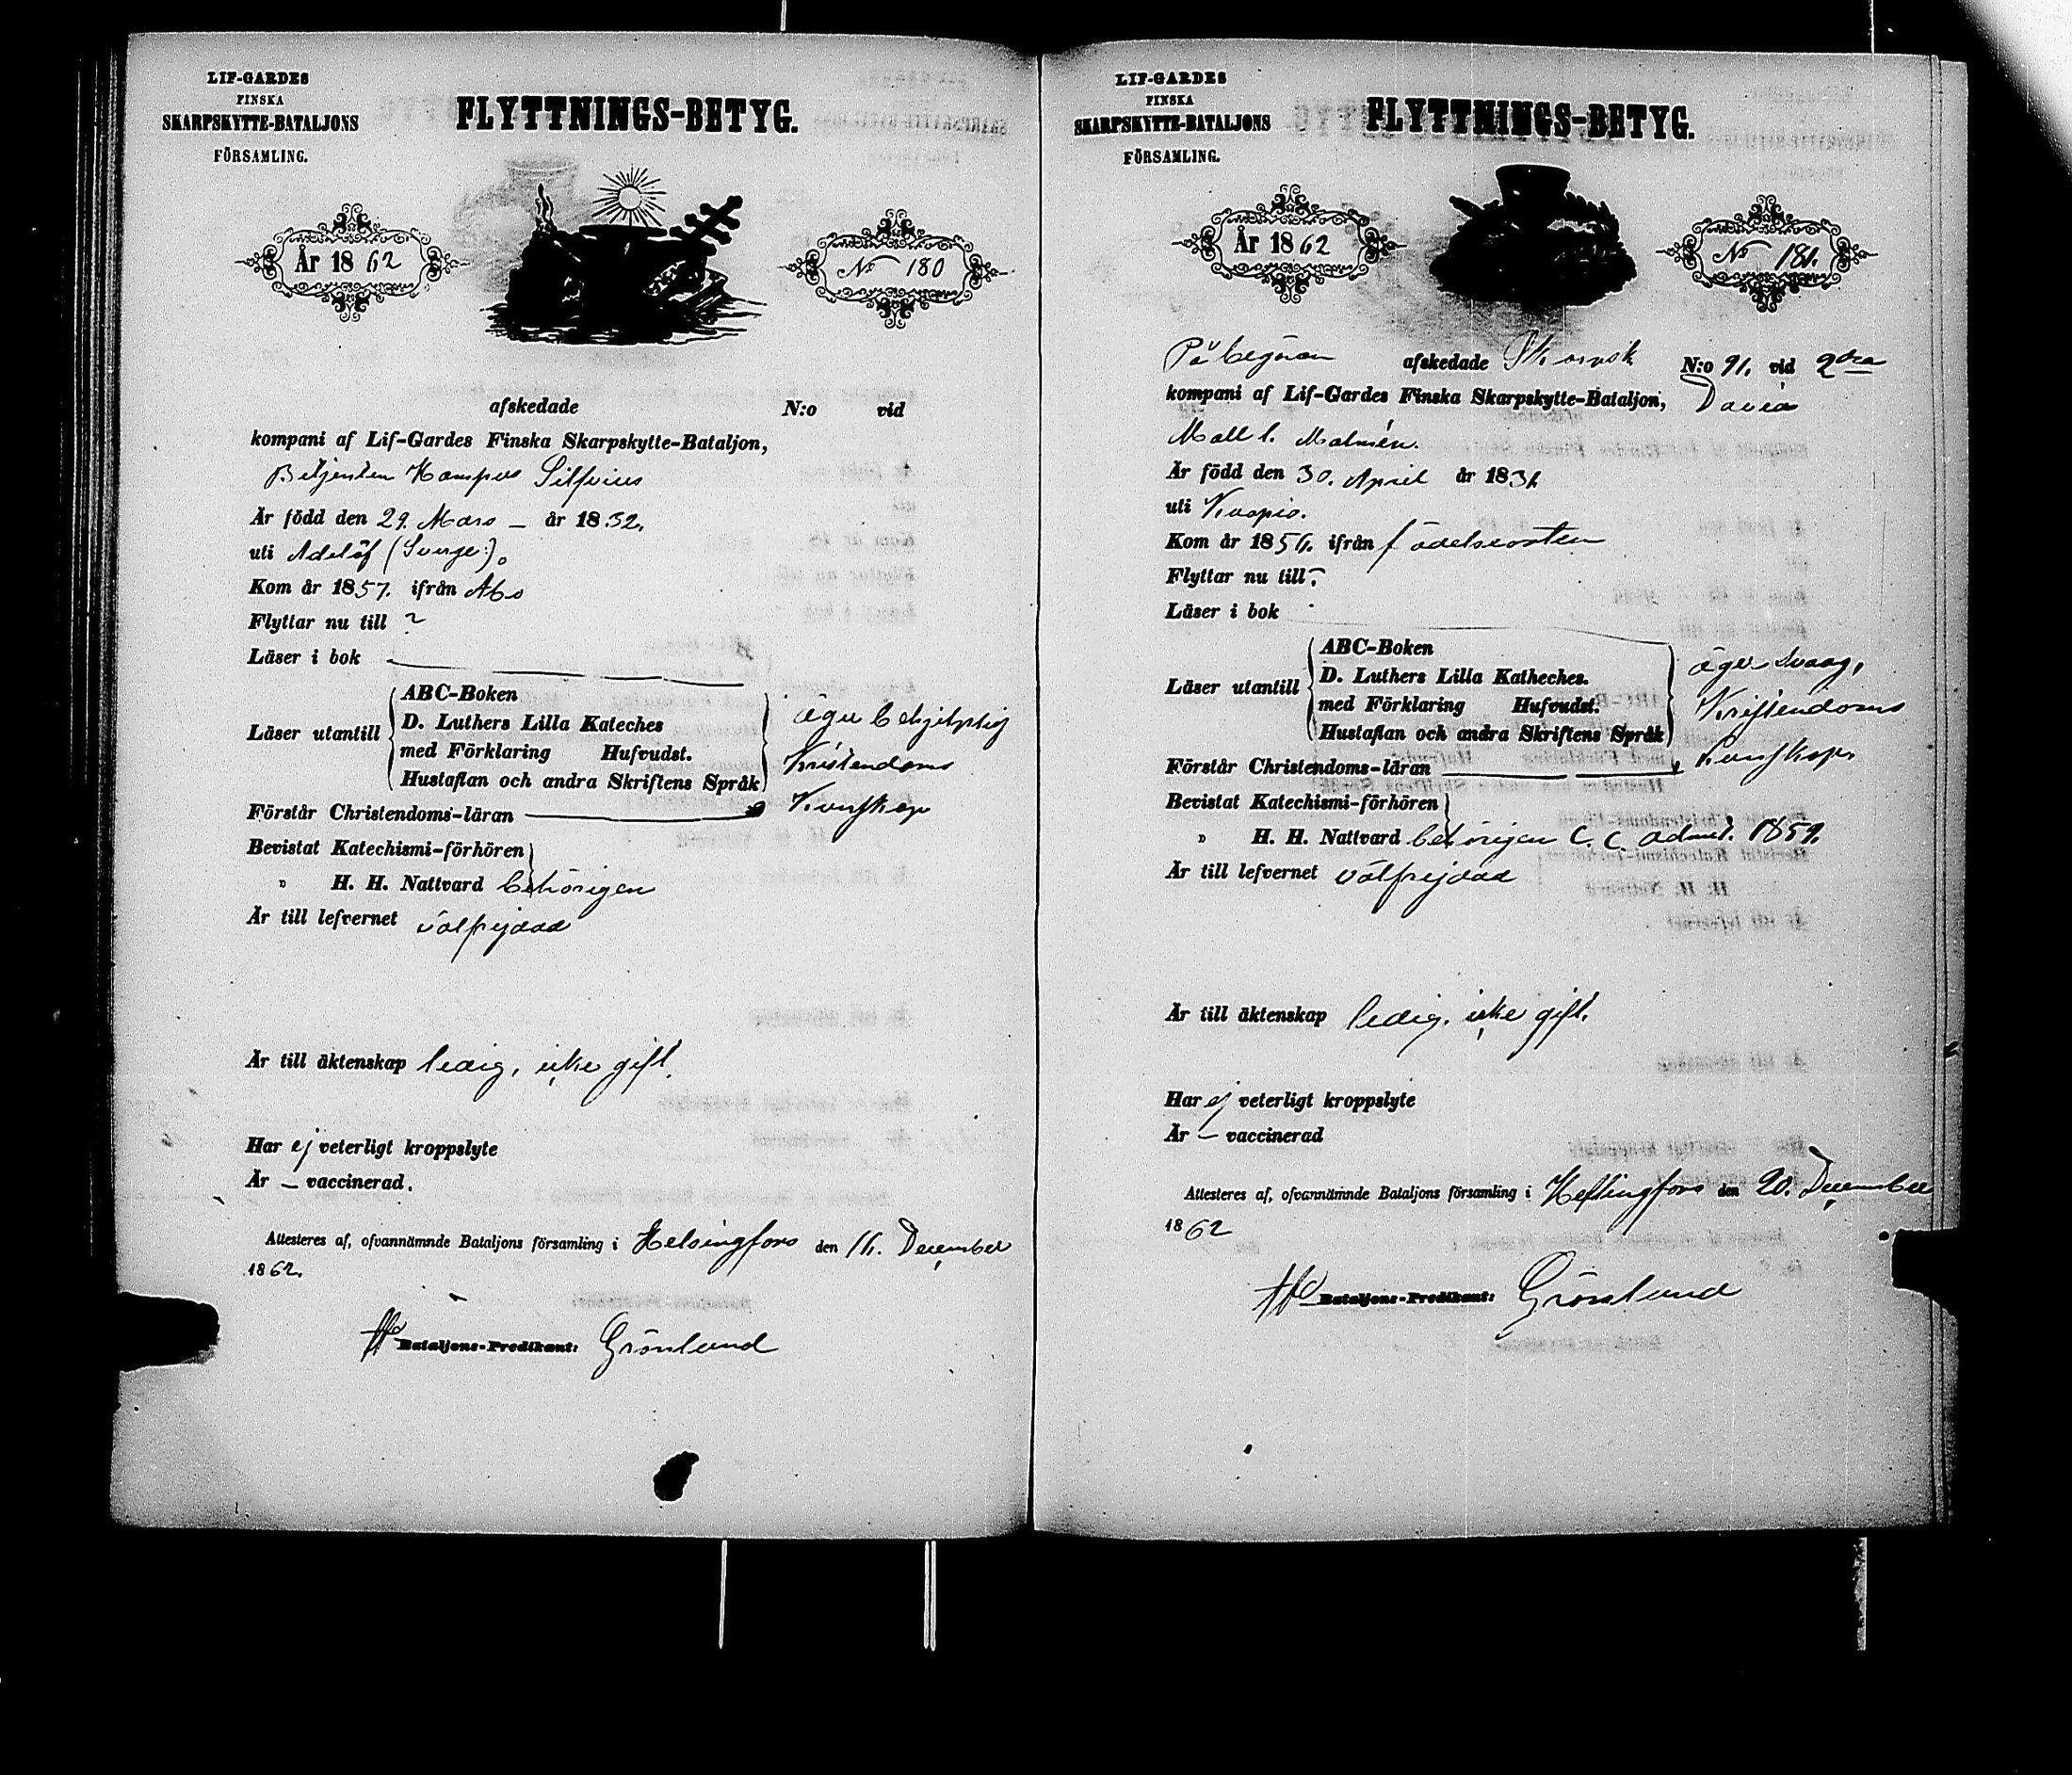 LIF-GARDES
FINSKA
SKARPSKYTTE-BATALJONS
FÖRSAMLING.
FLYTTNINGS-BETYG.
År 1862
No 180
afskedade N:o vid
kompani af Lif-Gardes Finska Skarpskytte-Bataljon,
Betjenten Silfvius
Är född den 29. Mars – år 1832.
uti Adelöf (Sverge).
Kom år 1857. ifrån Åbo
Flyttar nu till ?
Läser i bok
Läser utantill
ABC-Boken
D. Luthers Lilla Kateches
med Förklaring Hufvudst.
Hustaflan och andra Skriftens Språk
äger behjelplig
Kristendoms
Kunskap
Förstår Christendoms-läran
Bevistat Katechismi-förhören
" H. H. Nattvard behörigen
Är till lefvernet välfrejdad
Är till äktenskap ledig, icke gift.
Har ej veterligt kroppslyte
Är – vaccinerad.
Attesteres af, ofvannämnde Bataljons församling i Helsingfors den 16. December
1862.
Bataljons-Predikant: Grönlund
LIF-GARDES
FINSKA
SKARPSKYTTE-BATALJONS
FÖRSAMLING.
FLYTTNINGS-BETYG.
År 1862
No 181.
På begäran afskedade N:o 91. vid 2dra
kompani af Lif-Gardes Finska Skarpskytte-Bataljon, David
Malmén.
Är född den 30. April år 1836
uti Kuopio.
Kom år 1856. ifrån födelseorten
Flyttar nu till ?
Läser i bok
Läser utantill
ABC-Boken
D. Luthers Lilla Katheches.
med Förklaring Hufvudst.
Hustaflan och andra Skriftens Språk
äger svag,
Kristendoms
kunskap
Förstår Christendoms-läran
Bevistat Katechismi-förhören
" H. H. Nattvard behörigen C. C. admit. 1859.
Är till lefvernet välfrejdad
Är till äktenskap ledig, icke gift.
Har ej veterligt kroppslyte
Är – vaccinerad
Attesteres af, ofvannämnde Bataljons församling i Helsingfors den 20. December
1862
Bataljons-Predikant: Grönlund